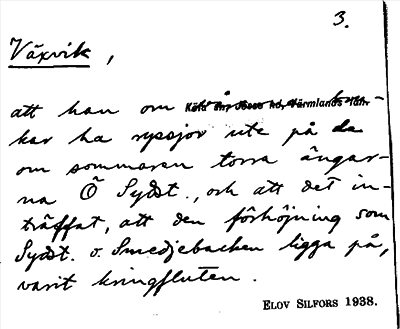 3.
Växvik,
att han om bru-
Köla sn, Jösse hd, Värmlands län
kar ha ryssjor ute på de
om sommaren torra ängar-
na Ö Sydst., och att det in-
träffat, att den förhöjning som
Sydst. o. Smedjebacken ligga på,
varit kringfluten.
ELOV SILFORS 1938.